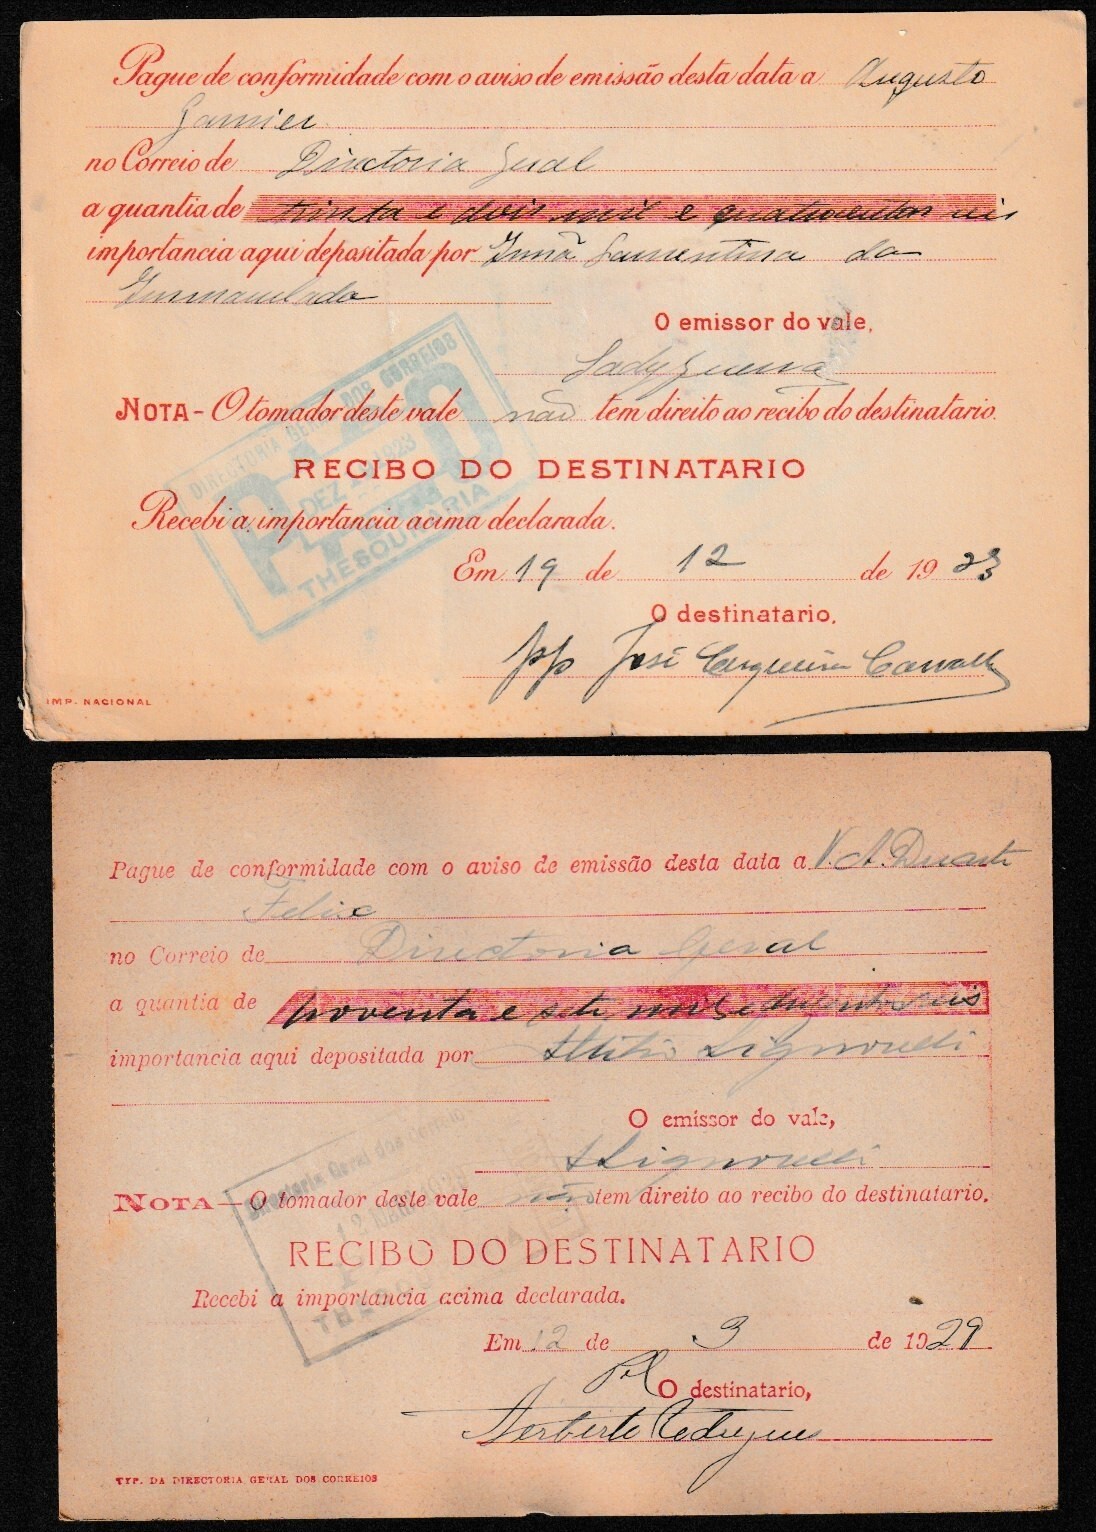 Pague de conformidade com o aviso de emissão desta data a Augusto
Garnier
no Correio de Directoria Geral
a quantia de trinta e dois mil e quatrocentos reis
importancia aqui depositada por Irmã Laurentina da
Immaculada
O emissor do vale,
Lady Guerra
NOTA - O tomador deste vale não tem direito ao recibo do destinatario.
DIRECTORIA GERAL DOS CORREIOS
PAGO
DEZ 1923
THESOURARIA
RECIBO DO DESTINATARIO
Recebi a importancia acima declarada.
Em 19 de 12 de 1923
O destinatario,
pp José Cerqueira Carvalho
IMP. NACIONAL
Pague de conformidade com o aviso de emissão desta data a V. A. Duarte
Felix
no Correio de Directoria Geral
a quantia de noventa e sete mil e duzentos reis
importancia aqui depositada por Attilio Signorelli
O emissor do vale,
ASignorelli
NOTA — O tomador deste vale não tem direito ao recibo do destinatario.
Directoria Geral dos Correios
RECIBO DO DESTINATARIO
Recebi a importancia acima declarada.
Em 12 de 3 de 1929
O destinatario,
Norberto Rodrigues
TYP. DA DIRECTORIA GERAL DOS CORREIOS